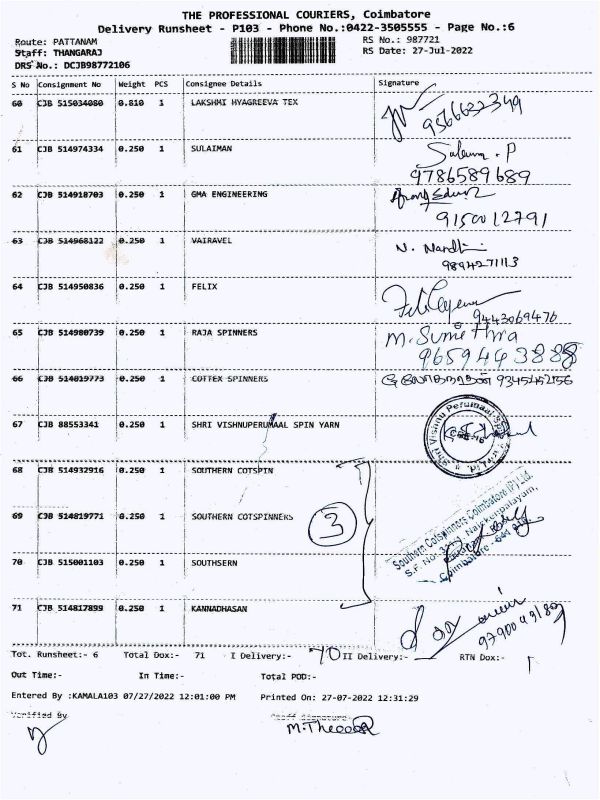 THE PROFESSIONAL COURIERS, Coimbatore
Delivery Runsheet - P103 - Phone No.:0422-3505555 - Page No.:6
Route: PATTANAM
RS No.: 987721
Staff: THANGARAJ
RS Date: 27-Jul-2022
DRS No.: DCJB98772106
S No Consignment No Weight PCS Consignee Details Signature
60 CJB 515034080 0.810 1 LAKSHMI HYAGREEVA TEX
9566632349
61 CJB 514974334 0.250 1 SULAIMAN
9786589689
62 CJB 514918703 0.250 1 GMA ENGINEERING
9150012791
63 CJB 514968122 0.250 1 VAIRAVEL N. Nandhini
9894271113
64 CJB 514950836 0.250 1 FELIX
9443069476
65 CJB 514980739 0.250 1 RAJA SPINNERS M. Sumithra
9659443888
66 CJB 514819773 0.250 1 COTTEX SPINNERS 9345452156
67 CJB 88553341 0.250 1 SHRI VISHNUPERUMAAL SPIN YARN
68 CJB 514932916 0.250 1 SOUTHERN COTSPIN
69 CJB 514819771 0.250 1 SOUTHERN COTSPINNERS 3
Southern Cotspinners Coimbatore (P) Ltd.
70 CJB 515001103 0.250 1 SOUTHSERN
71 CJB 514817899 0.250 1 KANNADHASAN
Tot. Runsheet:- 6 Total Dox:- 71 I Delivery:- 70 II Delivery:- RTN Dox:- 1
Out Time:- In Time:- Total POD:-
Entered By :KAMALA103 07/27/2022 12:01:00 PM Printed On: 27-07-2022 12:31:29
Verified By Staff Signature